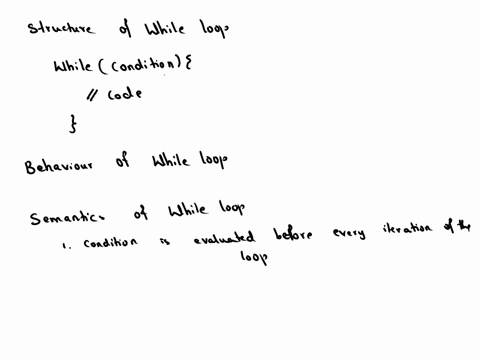 Structure of While loop
While (condition) {
// code
}
Behaviour of While loop
Semantics of While loop
1. condition is evaluated before every iteration of the
loop